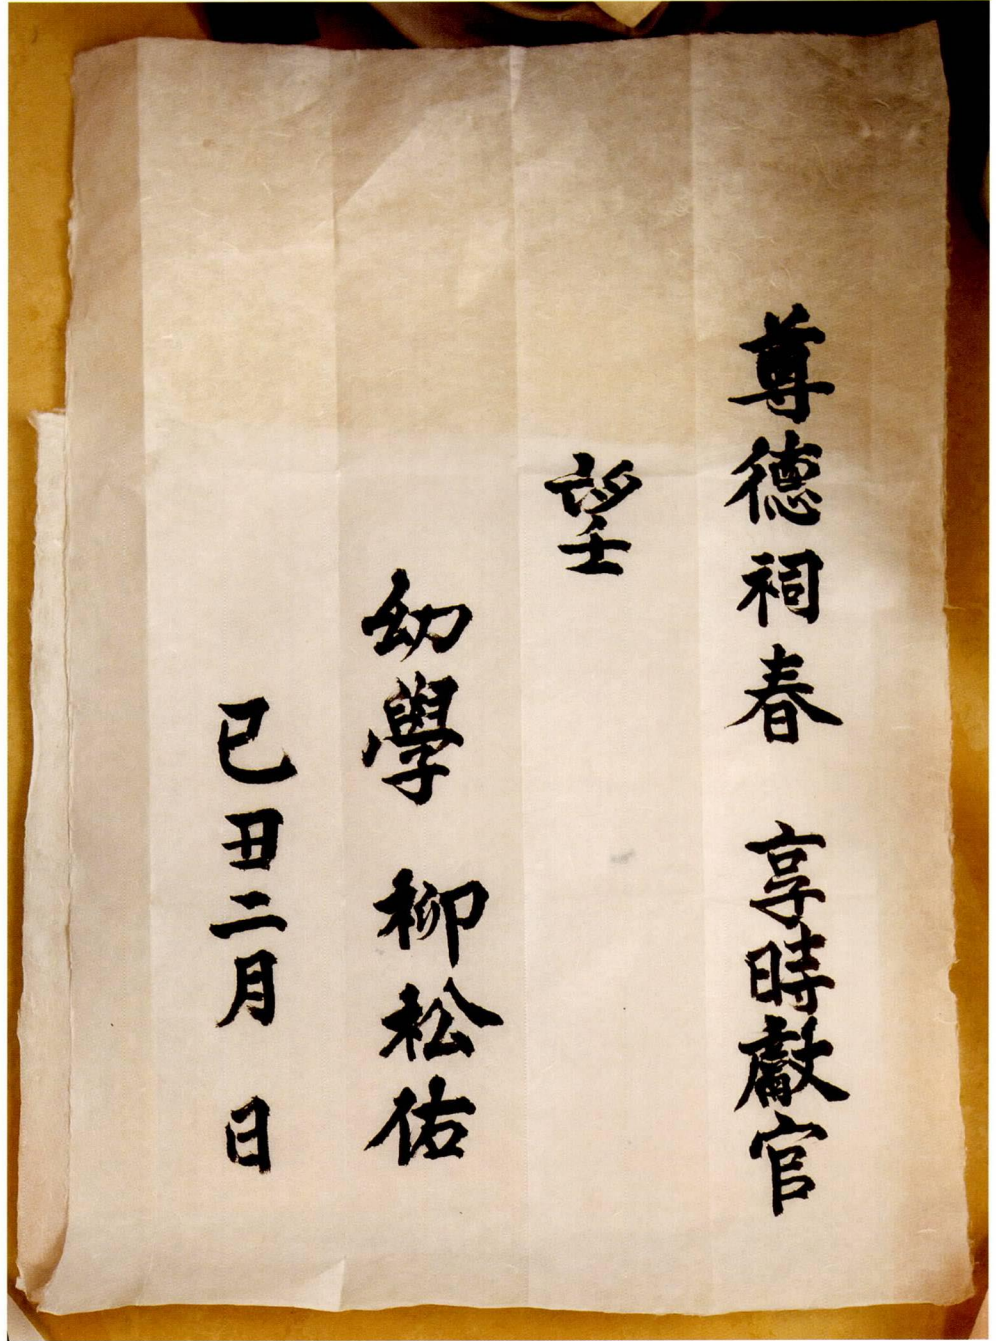 尊德祠春 享時獻官
望
幼學 柳松佑
己丑二月 日